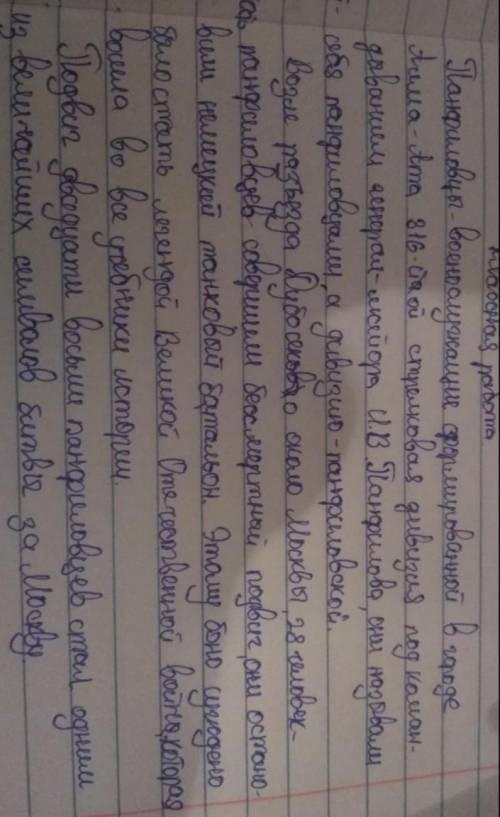 работа
Панфиловцы - военнослужащие сформированной в городе
Алма-Ата 316-стой стрелковая дивизия под коман-
дованием генерал-майора И.В Панфилова, они называли
себя панфиловцами, а дивизию - панфиловской.
Возле разъезда Дубосеково около Москвы, 28 человек-
панфиловцев совершили бессмертный подвиг, они остано-
вили немецкой танковый батальон. Этому было суждено
было стать легендой Великой Отечественной войны, которая
вошла во все учебники истории.
Подвиг двадцати восьми панфиловцев стал одним
из величайших символов битвы за Москву